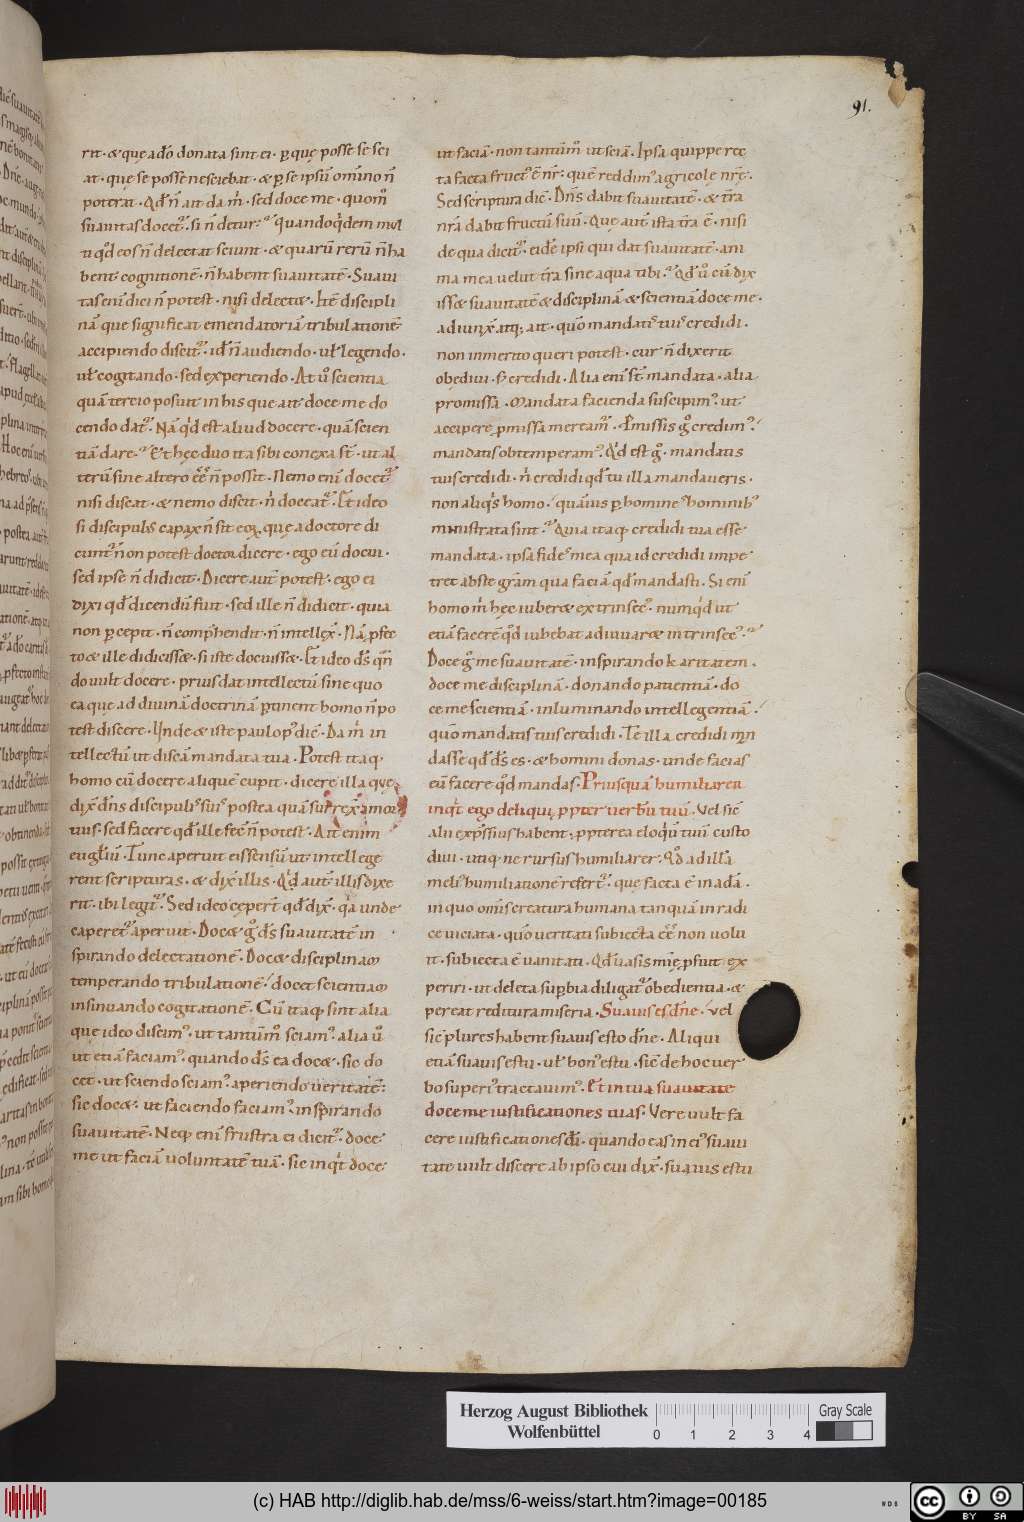 91.
rit · & quę ad hoc donata sint ei · ꝑ quę posse se sci
at · que se posse nesciebat · & ꝑ se ipsū om̄ino n̄
poterat · Qđ n̄ ait da m̍ · sed doce me · quom̊
suauitas docet᷑ · si n̄ detur: quandoq̍dem mul
ti qđ eos n̄ delectat sciunt · & quarū rerū n̄ ha
bent cognitionē · n̄ habent suauitatē · Suaui
tas enī dici n̄ potest · nisi delectæ · Itē discipli
nā que significat emendatoriā tribulationē
accipiendo discit᷑ · id ē n̄ audiendo · ul̄ legendo ·
ul̄ cogitando · sed experiendo · At ů scientia
quā tercio posuit in his que ait doce me do
cendo dat᷑ · Nā q̍d est aliud docere · quā scien
tiā dare · Et hęc duo ita sibi conexa st̄ · ut al
terū sine altero ēē n̄ possit · Nemo enī docet᷑
nisi discat · & nemo discit · n̍ doceat᷑ · Et ideo
si discipulus capax n̄ sit eoꝝ · quę a doctore di
cunt᷑ non potest doctor dicere · ego eū docui ·
sed ipse n̄ didicit · Dicere aut̄ potest · ego ei
dixi qđ dicendū fuit · sed ille n̄ didicit · quia
non ꝑcepit · n̄ comp̄hendit · n̄ intellex̄ · Nā ꝓfec
to & ille didicissæ · si iste docuissæ · Et ideo d̄s qn̄
do uult docere · prius dat intellectū sine quo
ea que ad diuinā doctrinā ꝑtinent homo n̄ po
test discere · Unde & iste paulo p̊ dic̄ · Da m̍ in
tellectū ut discā mandata tua · Potest itaq
homo cū docere aliquē cupit · dicere illa quę
dix̄ dn̄s discipulis suis postea quā surrex̄ a mor
tuis · sed facere qđ ille fec̄ n̄ potest · Ait enim
eugl̄iū · Tunc aperuit eis sensū ut intellege
rent scripturas · & dix̄ illis · Q̍d aut̄ illis dixe
rit · ibi legit᷑ · Sed ideo ceper̄t qđ dix̄ · q̍a unde
caperet᷑ aperuit · Docæ g̊ d̄s suauitatē in
spirando delectationē · Docæ disciplinam
temperando tribulationē · docet scientiam
insinuando cogitationē · Cū itaq · sint alia
que ideo discim᷒ · ut tantūm̊ sciam᷒ · alia ů
ut etiā faciam᷒ · quando d̄s ea docæ · sic do
cet · ut sciendo sciam᷒ · aperiendo ueritatē:
sic docæ · ut faciendo faciam᷒ · inspirando
suauitatē · Neq · enī frustra ei dicit᷑ · doce
me ut faciā uoluntatē tuā · sic inq̍t doce
ut faciā · non tantūm̊ ut sciā · Ipsa quippe rec
ta facta fruct᷒ ē nr̄ · quē reddim᷒ agricolę nr̄ę ·
Sed scriptura dic̄ · Dn̄s dabit suauitatē · & t̄ra
nr̄a dabit fructū suū · Que aut̄ ista t̄ra ē · nisi
de qua dicit᷑ · eidē ipsi qui dat suauitatē · ani
ma mea uelut t̄ra sine aqua tibi · Qđ ů cū dix
issæ suauitatē & disciplinā & scientiā doce me ·
adiunx̄ atq; ait · quō mandatis tuis credidi ·
non inmerito queri potest · cur n̄ dixerit
obediui · s; credidi · Alia enī st̄ mandata · alia
promissa · Mandata facienda suscipim᷒ · ut
accipere ꝓmissa mereamᷓ · Promissis g̊ credim᷒ ·
mandatis obtemperam᷒ · Q̍d est g̊ · mandatis
tuis credidi · n̍ credidi qđ tu illa mandaueris ·
non aliq̍s homo · quāuis ꝑ homine hominib᷒
ministrata sint · Quia itaq · credidi tua esse
mandata · ipsa fides mea qua id credidi impe
tret abs te grām qua faciā qđ mandasti · Si enī
homo m̍ hęc iuberæ extrinsec᷒ · numq̍d ut
etiā facerē qđ iubebat adiuuaræ intrinsec᷒ ·
Doce g̊ me suauitatē · inspirando karitatem ·
doce me disciplinā · donando patientiā · do
ce me scientiā · inluminando intellegentiā ·
quō mandatis tuis credidi · Te illa credidi man
dasse qđ d̄s es · & homini donas · unde facias
eū facere qđ mandas · Priusquā humiliarer
inq̍t ego deliqui · ꝓpter uerbū tuū · Vel sic̄
alii exp̄ssius habent · ꝓpterea eloq̍ū tuū custo
diui · utiq · ne rursus humiliarer · Qđ ad illā
meli᷒ humiliationē refert᷑ · que facta ē in adā ·
in quo omīs creatura humana tanquā in radi
ce uiciata · quō ueritati subiecta ēē non uolu
it · subiecta ē uanitati · Qđ uasis mīę ꝓfuit ex
periri · ut deleta suꝑbia diligat᷑ obedientia · &
pereat reditura miseria · Suauis es dn̄e · vel
sic̄ plures habent suauis esto dn̄e · Aliqui
etiā suauis es tu · ul̄ bon᷒ es tu · sic̄ de hoc uer
bo superi᷒ tractauim᷒ · Et in tua suauitate
doce me iustificationes tuas · Vere uult fa
cere iustificationes d̄i · quando eas in ei᷒ suaui
tate uult discere ab ipso cui dix̄ · suauis es tu
Herzog August Bibliothek
Wolfenbüttel
0 1 2 3 4
Gray Scale
(c) HAB http://diglib.hab.de/mss/6-weiss/start.htm?image=00185
WDB
cc BY SA